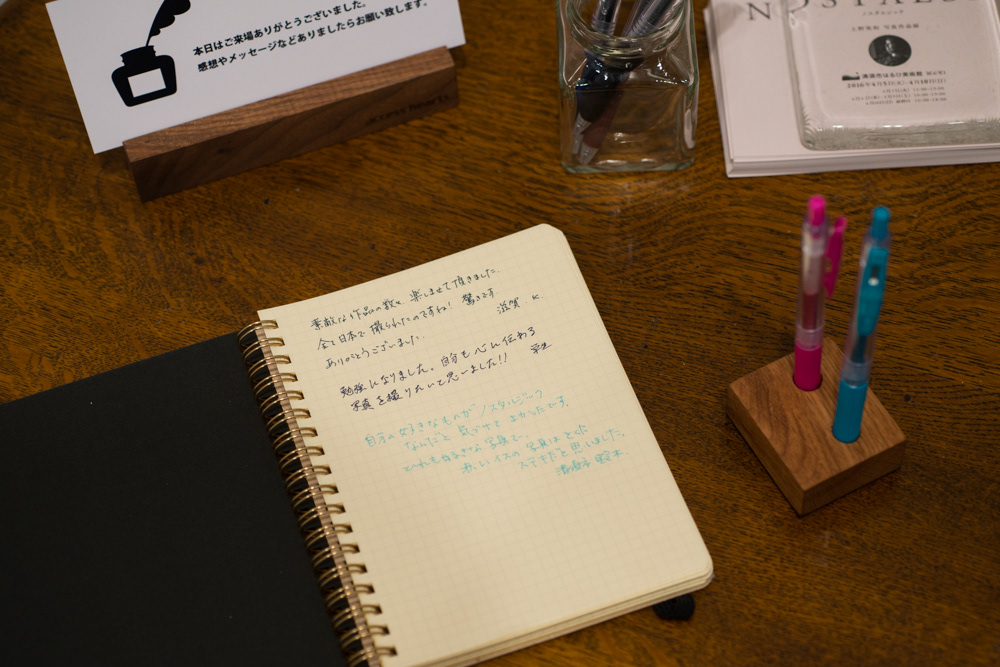 本日はご来場ありがとうございました。
感想やメッセージなどありましたらお願い致します。
NOSTALG
ノスタルジック
素敵な作品の数々、楽しませて頂きました。
全て日本で撮られたのですね! 驚きです。
ありがとうございました。
滋賀 K
勉強になりました。自分も心に伝わる
写真を撮りたいと思いました!!
自分の好きなものがノスタルジーク
なんだと気づけてよかったです。
どれも好きな写真で、
赤いイスの写真はとくに
ステキだと思いました。